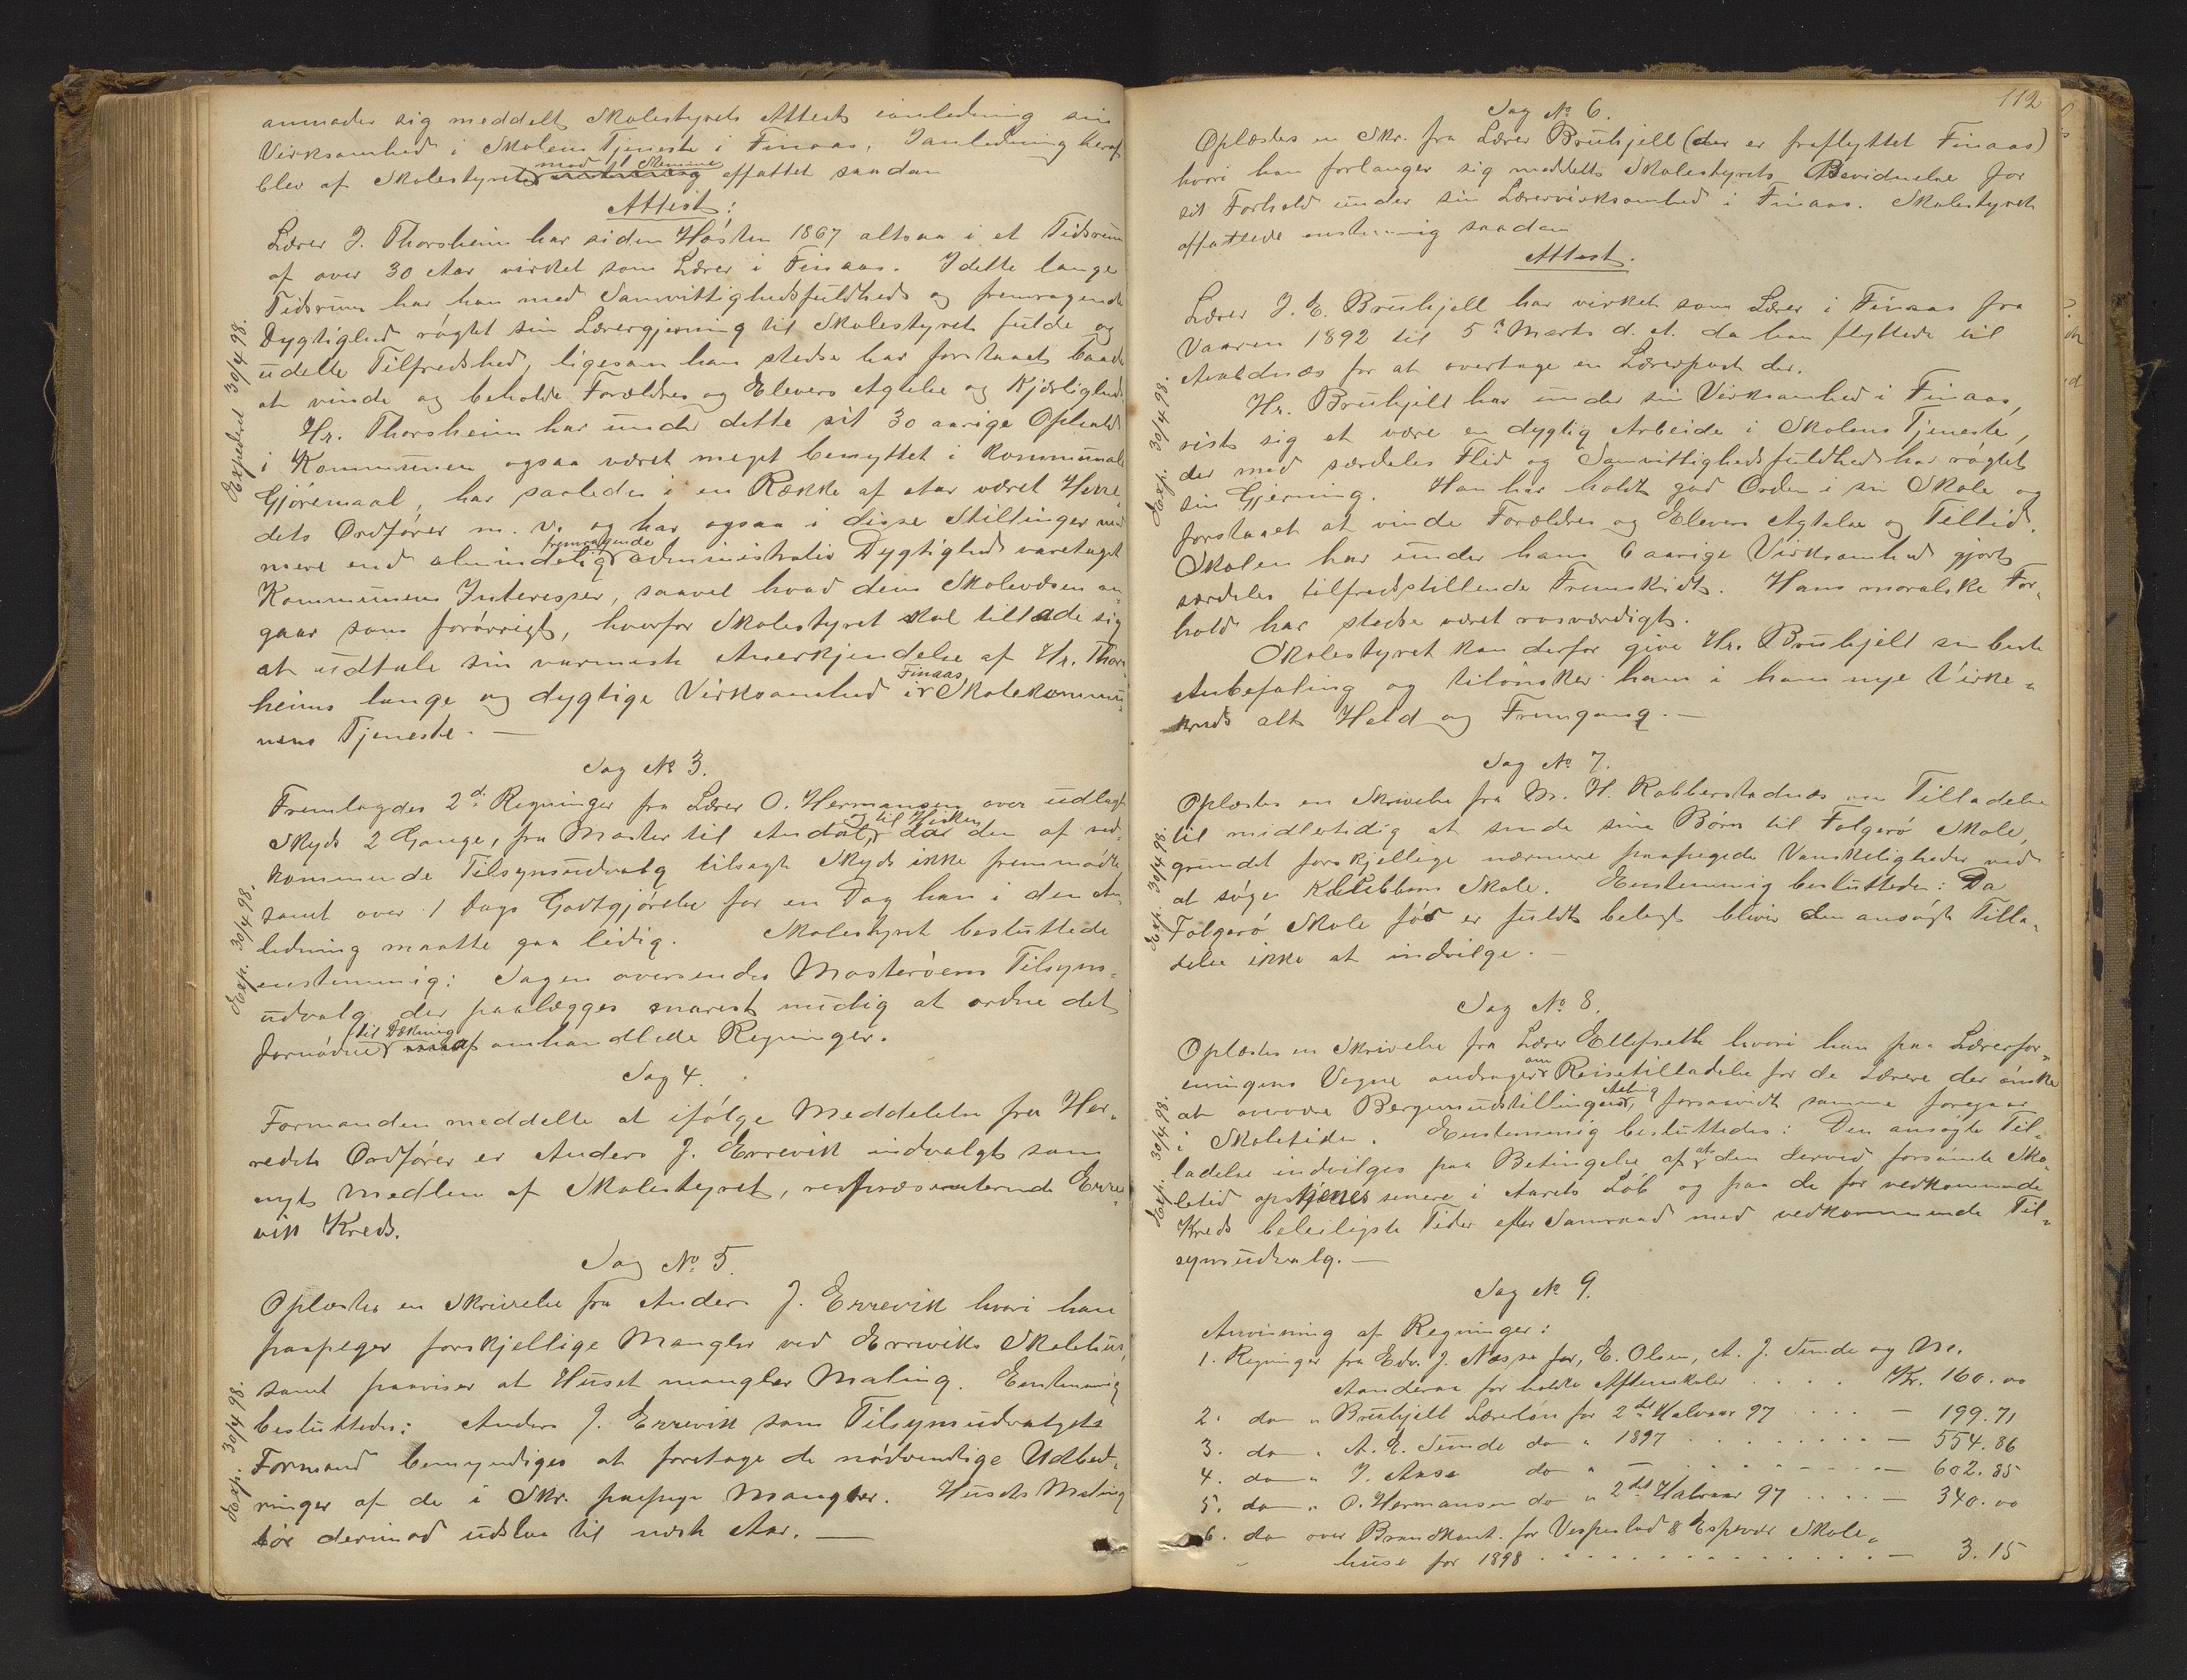 anmoder sig meddelt Skolestyrets Attest ianledning sin
Virksomhed i Skolens Tjeneste i Finaas. Ianledning heraf
blev af Skolestyret mod 1 Stemme affattet saadan
Attest:
Lærer J. Thorsheim har siden Høsten 1867 altsaa i et Tidsrum
af over 30 Aar virket som Lærer i Finaas. I dette lange
Tidsrum har han med Samvittighedsfuldhed og fremragende
Dygtighed røgtet sin Lærergjerning til Skolestyrets fulde og
udelte Tilfredshed, ligesom han stedse har forstaaet baade
at vinde og beholde Forældres og Elevers Agtelse og Kjærlighed.
Hr. Thorsheim har under dette sit 30 aarige Ophold
i Kommunen ogsaa været meget benyttet i kommunale
Gjøremaal, har saaledes i en Række af Aar været Herre-
dets Ordfører m. v. og har ogsaa i disse Stillinger med
mere end almindelig fremragende administrativ Dygtighed varetaget
Kommunens Interesser, saavel hvad dens Skolevæsen an-
gaar som forøvrigt, hvorfor Skolestyret skal tillade sig
at udtale sin varmeste Anerkjendelse af Hr. Thors-
heims lange og dygtige Virksomhed i Finaas Skolekommu-
nens Tjeneste. —
Expederet 30/4 98.
Sag No 3.
Fremlagdes 2de Regninger fra Lærer O. Hermansen over udlagt
Skyds 2 Gange, fra Moster til Andal, og til Hisken da den af ved-
kommende Tilsynsudvalg tilsagte Skyds ikke fremmødte
samt over 1 Dags Godtgjørelse for en Dag han i den An-
ledning maatte gaa ledig. Skolestyret besluttede
enstemmig: Sagen oversendes Mosterøens Tilsyns-
udvalg der paalægges snarest mulig at ordne det
fornødne til Dækning af omhandlede Regninger.
Exp. 30/4 98.
Sag 4.
Formanden meddelte at ifølge Meddelelse fra Her-
redets Ordfører er Anders J. Errevik indvalgt som
nyt Medlem af Skolestyret, repræsenterende Erre-
vik Kreds.
Sag No 5.
Oplæstes en Skrivelse fra Anders J. Errevik hvori han
paapeger forskjellige Mangler ved Erreviks Skolehus,
samt paaviser at Huset mangler Maling. Enstemmig
besluttedes: Anders J. Errevik som Tilsynsudvalgets
Formand bemyndiges at foretage de nødvendige Udbed-
ringer af de i Skr. paapegte Mangler. Husets Maling
bør derimod udstaa til næste Aar. —
Exp. 30/4 98.
112
Sag No 6.
Oplæstes en Skr. fra Lærer Bruhjell (der er fraflyttet Finaas)
hvori han forlanger sig meddelt Skolestyrets Bevidnelse for
sit Forhold under sin Lærervirksomhed i Finaas. Skolestyret
affattede enstemmig saadan
Attest.
Lærer J. E. Bruhjell har virket som Lærer i Finaas fra
Vaaren 1892 til 5te Marts d. A. da han flyttede til
Avaldsnæs for at overtage en Lærerpost der.
Hr. Bruhjell har under sin Virksomhed i Finaas,
vist sig at være en dygtig Arbeide i Skolens Tjeneste,
der med særdeles Flid og Samvittighedsfuldhed har røgtet
sin Gjerning. Han har holdt god Orden i sin Skole og
forstaaet at vinde Forældres og Elevers Agtelse og Tillid.
Skolen har under hans 6 aarige Virksomhed gjort
særdeles tilfredsstillende Fremskridt. Hans moralske For-
hold har stedse været rosværdigt.
Skolestyret kan derfor give Hr. Bruhjell sin beste
Anbefaling og tilønsker ham i hans nye Virke-
kreds alt Held og Fremgang. —
Exp. 30/4 98.
Sag No 7.
Oplæstes en Skrivelse fra M. H. Robberstadnæs om Tilladelse
til midlertidig at sende sine Børn til Folgerø Skole,
grundet forskjellige nærmere paapegede Vanskeligheder ved
at søge Skole. Enstemmig besluttedes: Da
Folgerø Skole før er fuldt belagt bliver den ansøgte Tilla-
delse ikke at indvilge. —
Exp. 30/4 98.
Sag No 8.
Oplæstes en Skrivelse fra Lærer Ellefseth hvori han paa Lærerfor-
eningens Vegne andrager om Reisetilladelse for de Lærere der ønske
at overvære Bergensudstillingens Aabning, forsaavidt samme foregaar
i Skoletiden. Enstemmig besluttedes: Den ansøgte Til-
ladelse indvilges paa Betingelse af at den derved forsømte Sko-
letid senere i Aarets Løb og paa de for vedkommende
Kreds beleiligste Tider efter Samraad med vedkommende Til-
synsudvalg. —
Exp. 30/4 98.
Sag No 9.
Anvisning af Regninger:
1. Regninger fra Edv. J. Næsse for, E. Olsen, A. J. Sunde og M.
Aanderaa for holdte Aftenskoler . . . . Kr. 160.00
2. do " Bruhjell Lærerløn for 2det Halvaar 97 . . . . — 199.71
3. do " A. E. Sunde do " 1897 . . . . . . — 554.86
4. do " J. Aase do " — . . . . . . — 602.85
5. do " O. Hermansen do " 2det Halvaar 97 . . . . — 340.00
6. do over Brandkont. for Vespestad & Espevær Skole-
huse for 1898 . . . . . . . . . — 3.15